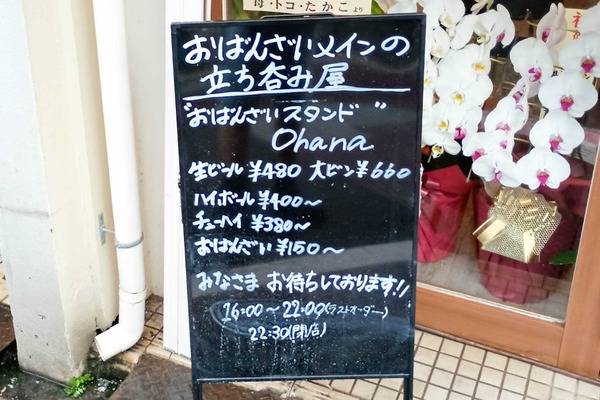 母・トコ・たかこより
おばんざいメインの
立ち呑み屋
"おばんざいスタンド"
Ohana
生ビール ¥480 大ビン¥660
ハイボール ¥400〜
チューハイ ¥380〜
おばんざい ¥150〜
みなさま お待ちしております!!
16:00〜22:00(ラストオーダー)
22:30(閉店)